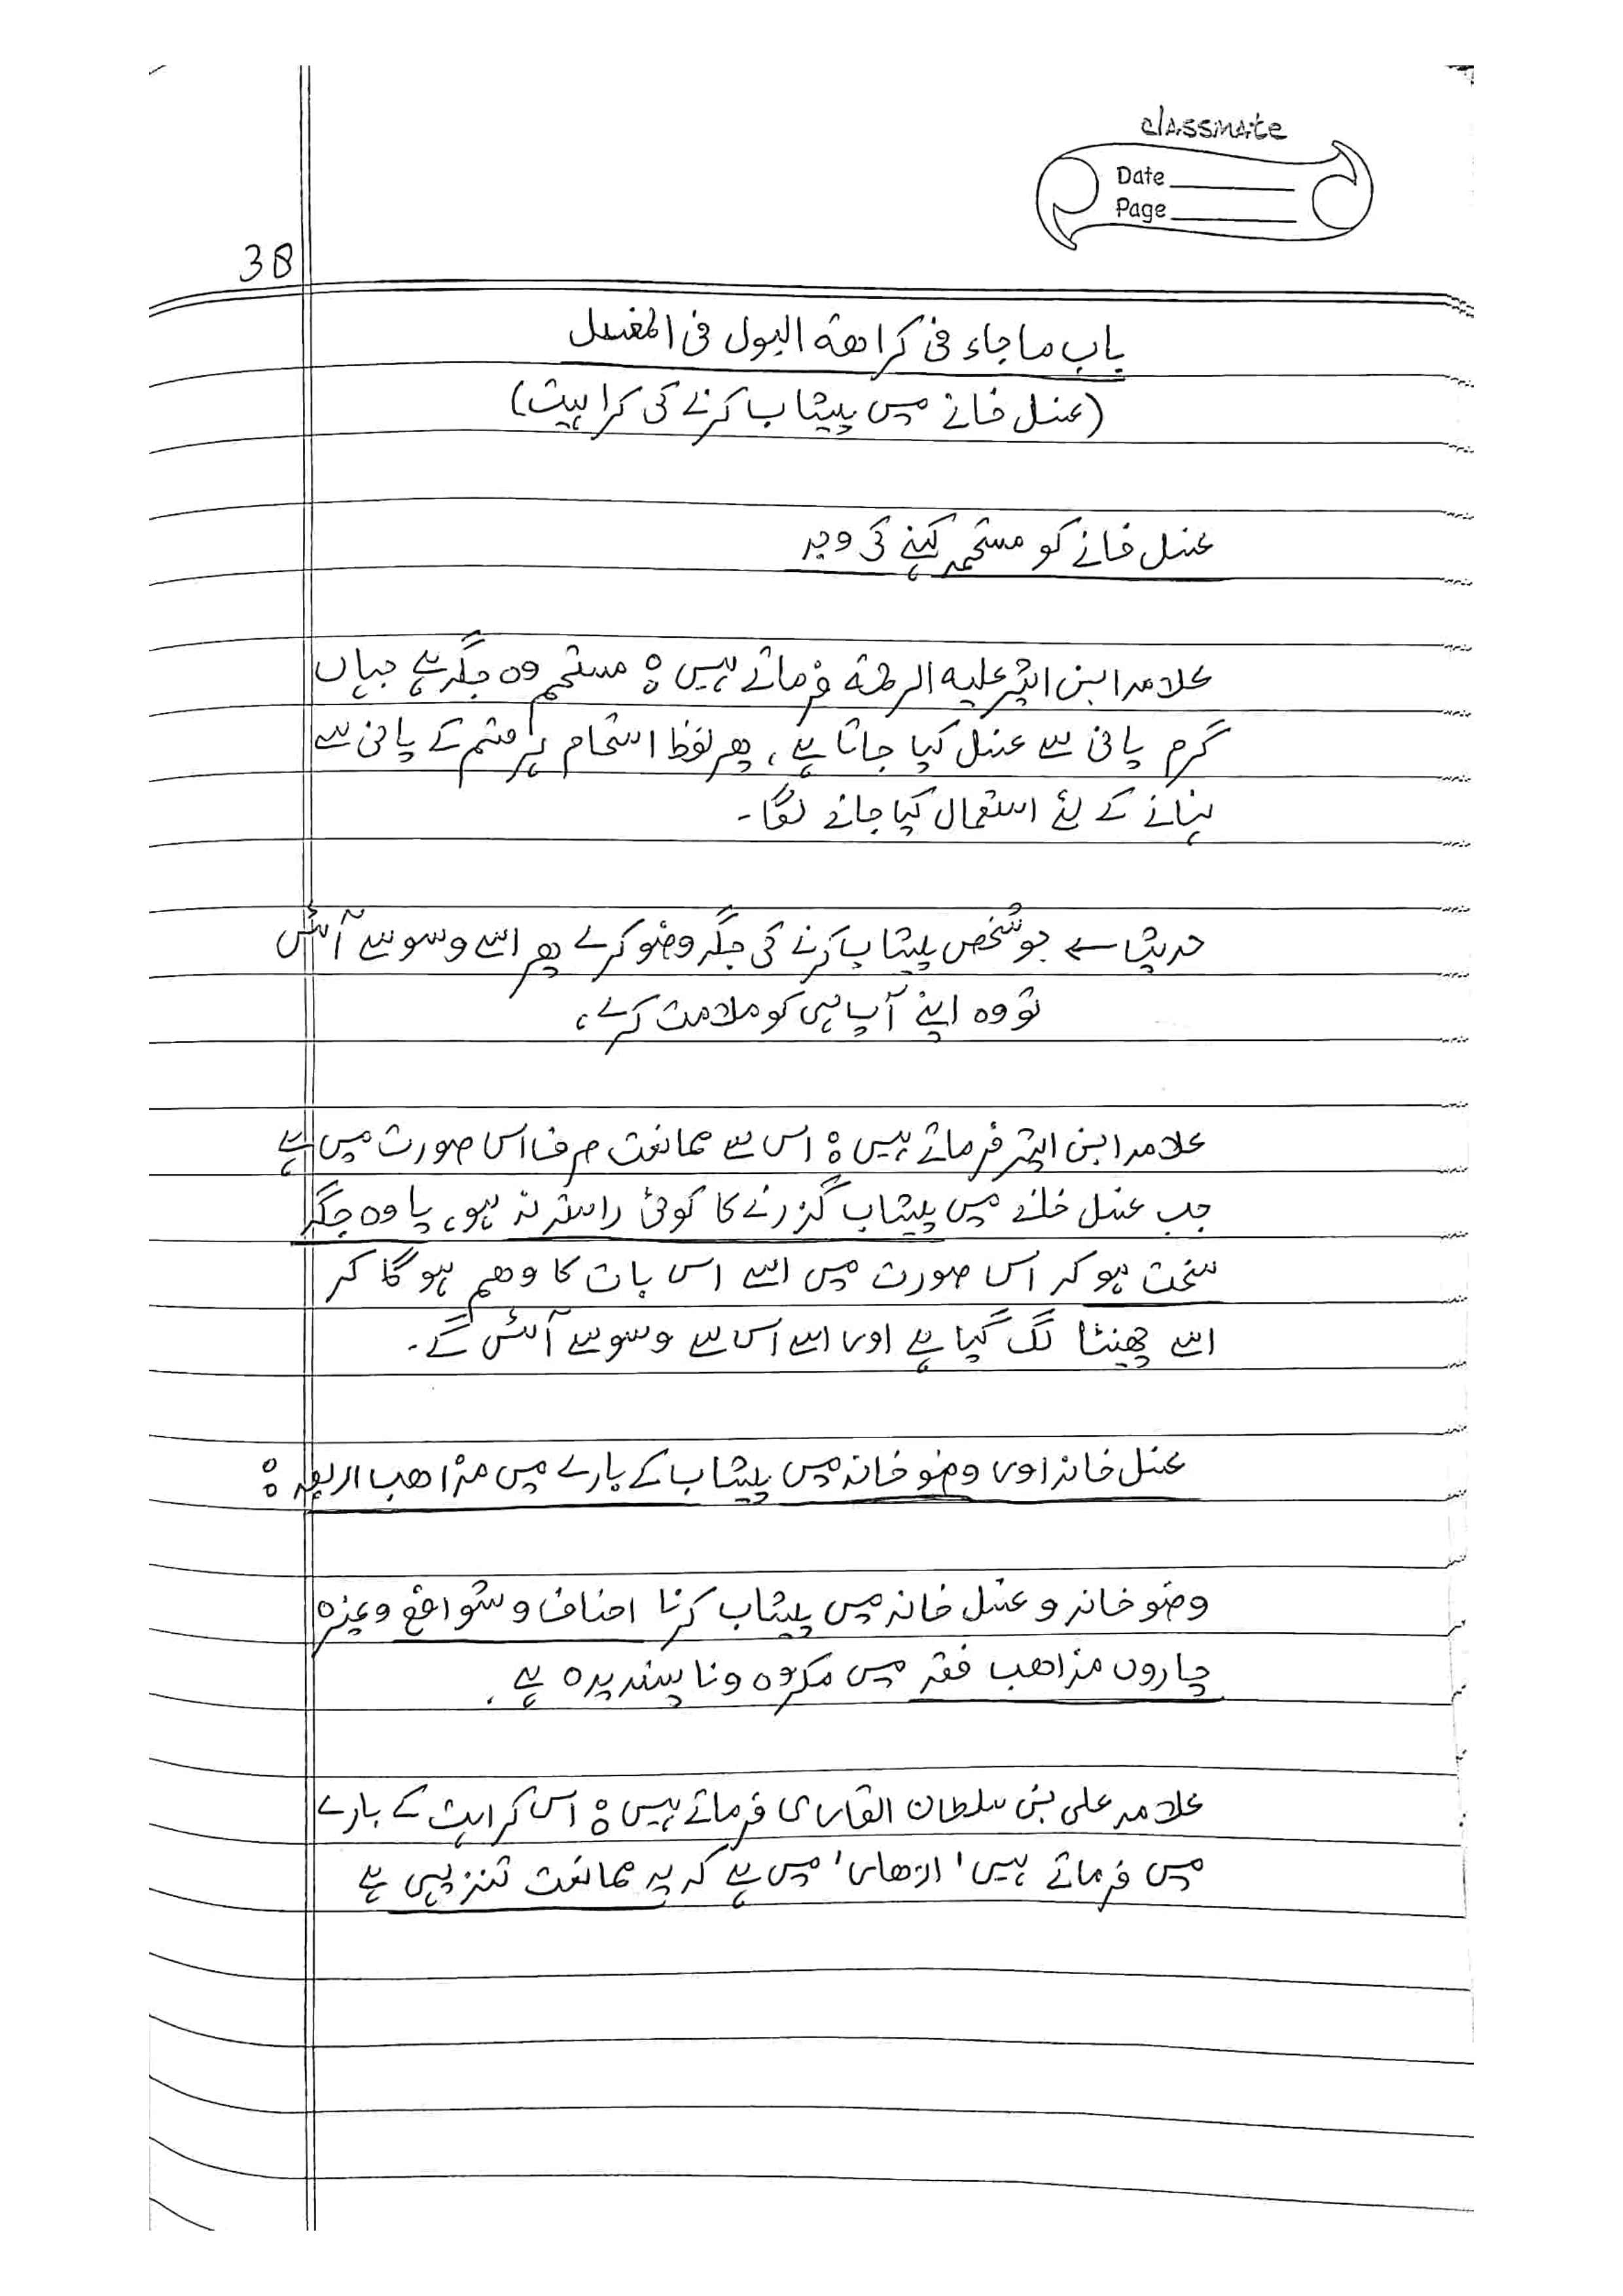 classmate
Date
Page
38
باب ما جاء فی کراھۃ البول فی المغتسل
(غسل خانے میں پیشاب کرنے کی کراہیت)
غسل خانے کو مستحمہ کہنے کی وجہ
علامہ ابن اثیر علیہ الرحمۃ فرماتے ہیں: مستحم وہ جگہ ہے جہاں
گرم پانی سے غسل کیا جاتا ہے، پھر لفظ استحمام ہر قسم کے پانی سے
نہانے کے لئے استعمال کیا جانے لگا۔
حدیث ← جو شخص پیشاب کرنے کی جگہ وضو کرے پھر اسے وسوسے آئیں
تو وہ اپنے آپ ہی کو ملامت کرے،
علامہ ابن اثیر فرماتے ہیں: اس سے ممانعت صرف اس صورت میں ہے
جب غسل خانے میں پیشاب گزرنے کا کوئی راستہ نہ ہو، یا وہ جگہ
سخت ہو کہ اس صورت میں اسے اس بات کا وھم ہو گا کہ
اسے چھینٹا لگ گیا ہے اور اسے اس سے وسوسے آئیں گے۔
غسل خانہ اور وضو خانہ میں پیشاب کے بارے میں مذاھب اربعہ:
وضو خانہ و غسل خانہ میں پیشاب کرنا احناف و شوافع وغیرہ
چاروں مذاھب فقہ میں مکروہ و ناپسندیدہ ہے۔
علامہ علی بن سلطان القاری فرماتے ہیں: اس کراہت کے بارے
میں فرماتے ہیں 'ازھار' میں ہے کہ یہ ممانعت تنزیہی ہے